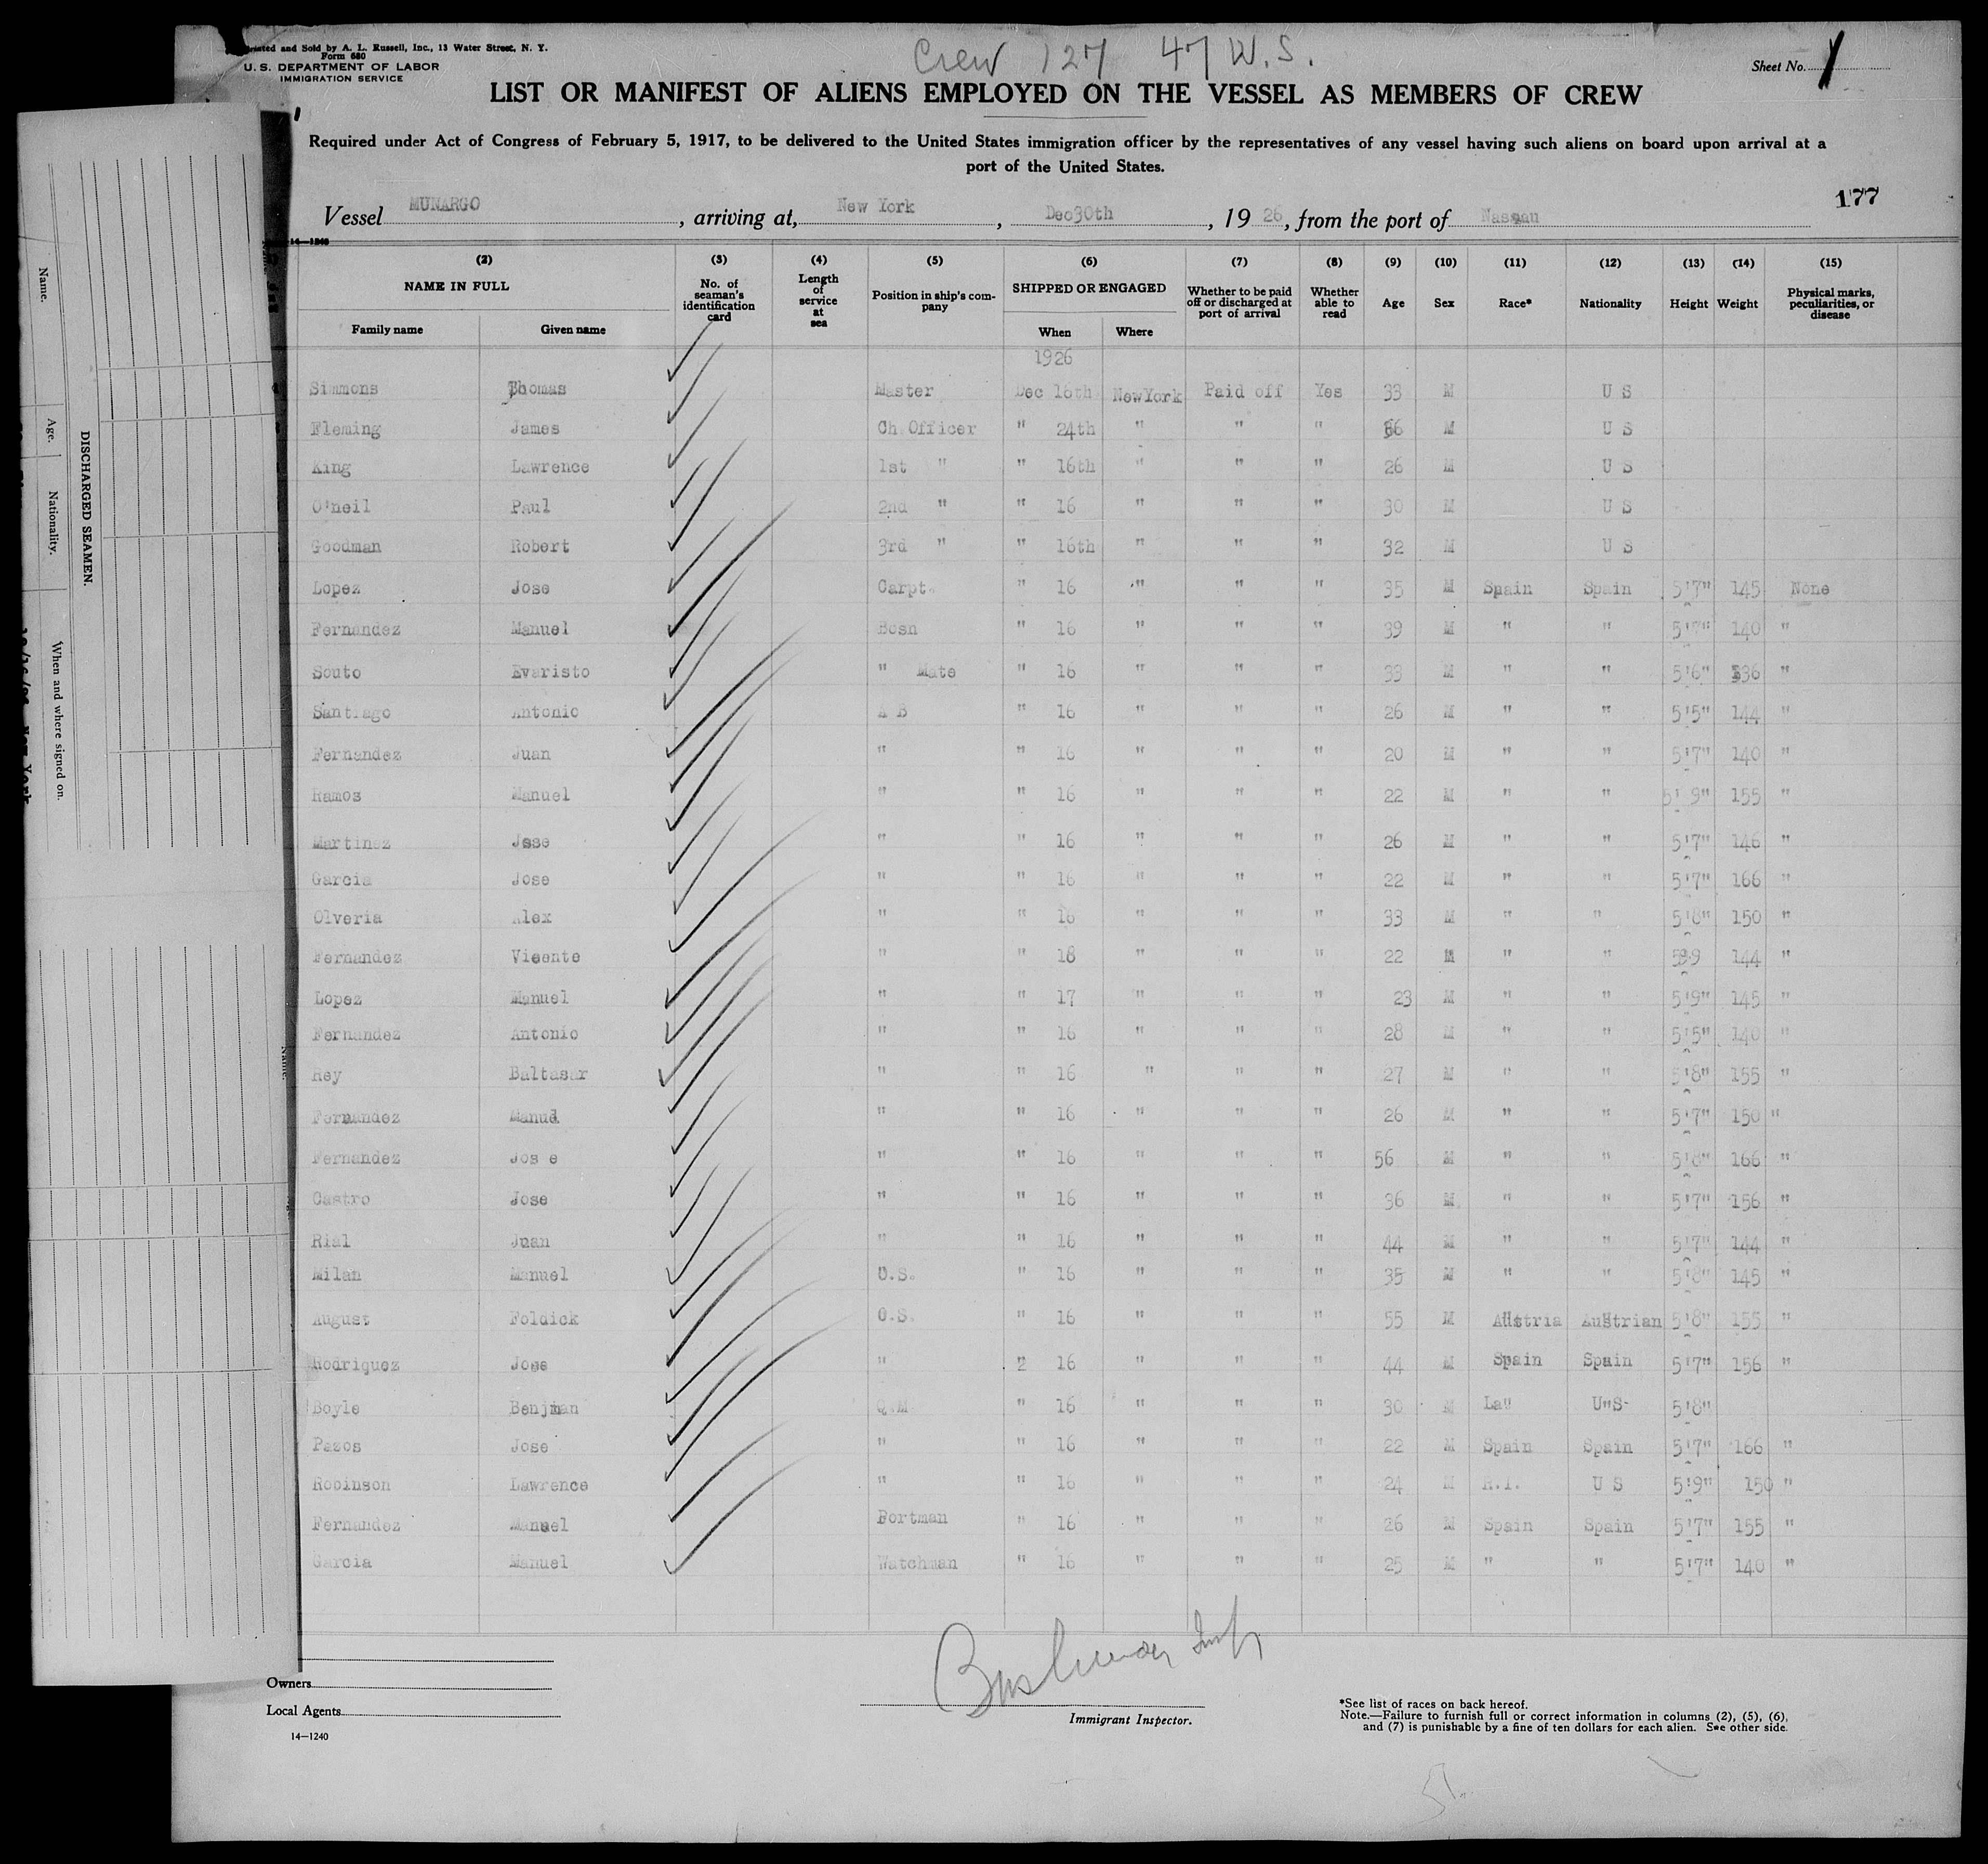 Printed and Sold by A. L. Russell, Inc., 13 Water Street, N. Y.
Form 680
U. S. DEPARTMENT OF LABOR
IMMIGRATION SERVICE
Crew 127 47 W.S.
Sheet No. 1
LIST OR MANIFEST OF ALIENS EMPLOYED ON THE VESSEL AS MEMBERS OF CREW
Required under Act of Congress of February 5, 1917, to be delivered to the United States immigration officer by the representatives of any vessel having such aliens on board upon arrival at a
port of the United States.
177
Vessel MUNARGO, arriving at, New York, Dec30th, 19 26, from the port of Nassau
14—1240
(2) (3) (4) (5) (6) (7) (8) (9) (10) (11) (12) (13) (14) (15)
NAME IN FULL No. of seaman's identification card Length of service at sea Position in ship's company SHIPPED OR ENGAGED Whether to be paid off or discharged at port of arrival Whether able to read Age Sex Race* Nationality Height Weight Physical marks, peculiarities, or disease
Family name Given name When Where
1926
Simmons Thomas Master Dec 16th NewYork Paid off Yes 33 M U S
Fleming James Ch Officer " 24th " " " 36 M U S
King Lawrence 1st " " 16th " " " 26 M U S
O'neil Paul 2nd " " 16 " " " 30 M U S
Goodman Robert 3rd " " 16th " " " 32 M U S
Lopez Jose Carpt. " 16 " " " 35 M Spain Spain 5'7" 145 None
Fernandez Manuel Bosn " 16 " " " 39 M " " 5'7" 140 "
Souto Evaristo " Mate " 16 " " " 33 M " " 5'6" 136 "
Santiago Antonio A B " 16 " " " 26 M " " 5'5" 144 "
Fernandez Juan " " 16 " " " 20 M " " 5'7" 140 "
Ramos Manuel " " 16 " " " 22 M " " 5' 9" 155 "
Martinez Jose " " 16 " " " 26 M " " 5'7" 146 "
Garcia Jose " " 16 " " " 22 M " " 5'7" 166 "
Olveria Alex " " 16 " " " 33 M " " 5'8" 150 "
Fernandez Vicente " " 18 " " " 22 M " " 5'9 144 "
Lopez Manuel " " 17 " " " 23 M " " 5'9" 145 "
Fernandez Antonio " " 16 " " " 28 M " " 5'5" 140 "
Rey Baltasar " " 16 " " " 27 M " " 5'8" 155 "
Fernandez Manul " " 16 " " " 26 M " " 5'7" 150 "
Fernandez Jos e " " 16 " " " 56 M " " 5'8" 166 "
Castro Jose " " 16 " " " 36 M " " 5'7" 156 "
Rial Juan " " 16 " " " 44 M " " 5'7" 144 "
Milan Manuel O.S. " 16 " " " 35 M " " 5'8" 145 "
August Foldick O.S. " 16 " " " 55 M Austria Austrian 5'8" 155 "
Rodriquez Jose " 2 16 " " " 44 M Spain Spain 5'7" 156 "
Boyle Benjman Q.M. " 16 " " " 30 M La" U"S- 5'8"
Pazos Jose " " 16 " " " 22 M Spain Spain 5'7" 166 "
Robinson Lawrence " " 16 " " " 24 M R.I. U S 5'9" 150 "
Fernandez Manuel Portman " 16 " " " 26 M Spain Spain 5'7" 155 "
Garcia Manuel Watchman " 16 " " " 25 M " " 5'7" 140 "
Owners
Local Agents
14—1240
Immigrant Inspector.
*See list of races on back hereof.
Note.—Failure to furnish full or correct information in columns (2), (5), (6),
and (7) is punishable by a fine of ten dollars for each alien. See other side.
DISCHARGED SEAMEN.
Name. Age. Nationality. When and where signed on.